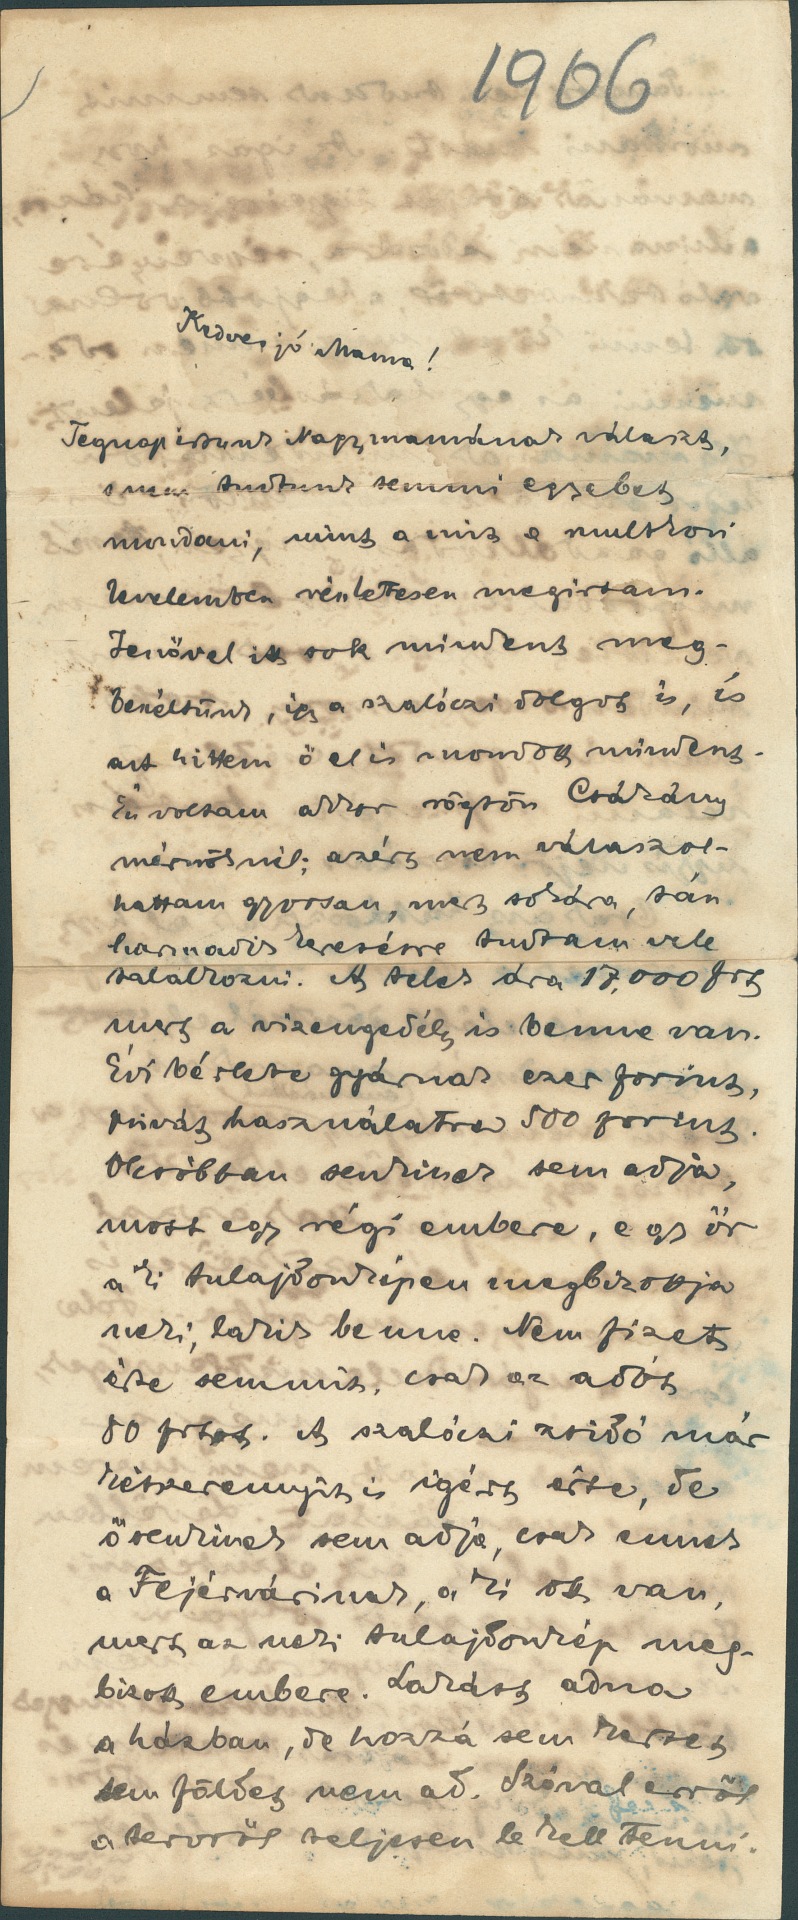 1906
Kedves jó Mama!
Tegnap írtunk Nagymamának választ,
s nem tudtunk semmi egyebet
mondani, mint a mit a multkori
levelemben részletesen megirtam.
Jenővel itt sok mindent meg-
beszéltünk, így a szalóczi dolgot is, és
azt hittem ő el is mondott mindent.
Én voltam akkor rögtön Csákány
mérnöknél; azért nem válaszol-
hattam gyorsan, mert sokára, tán
harmadik keresésre tudtam vele
találkozni. A telek ára 17,000 frt
mert a vizengedély is benne van.
Évi bérlete gyárnak ezer forint,
privát használatra 500 forint.
Olcsóbban senkinek sem adja,
most egy régi embere, egy őr
a ki tulajdonképen megbizottja
neki, lakik benne. Nem fizet
érte semmit, csak az adót
80 frtot. A szalóczi zsidó már
kétszerennyit is igért érte, de
ő senkinek sem adja, csak ennek
a Fejérvárinak, a ki ott van,
mert az neki tulajdonkép meg-
bizott embere. Lakást adna
a házban, de hozzá sem kertet
sem földet nem ad. Szóval erről
a tervről teljesen le kell tenni.